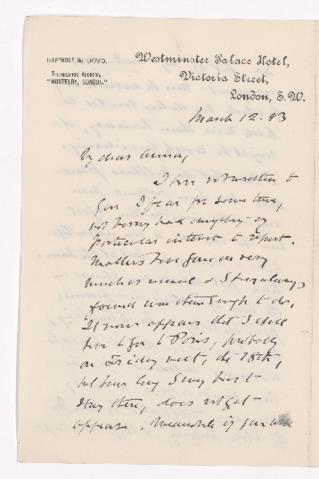 Westminster Palace Hotel,
TELEGRAPHIC ADDRESS,
Victoria Street,
"HOSTELRY, LONDON."
London, S.W.
March 12. 93
My dear Anna,
I have not written to
you I fear for some time,
not having had anything of
particular interest to report.
Matters have gone on very
much as usual & I have always
found more than enough to do.
It now appears that I shall
have to go to Paris, probably
on Friday next, the 18th,
but how long I may have to
stay there, does not yet
appear. Meanwhile if you